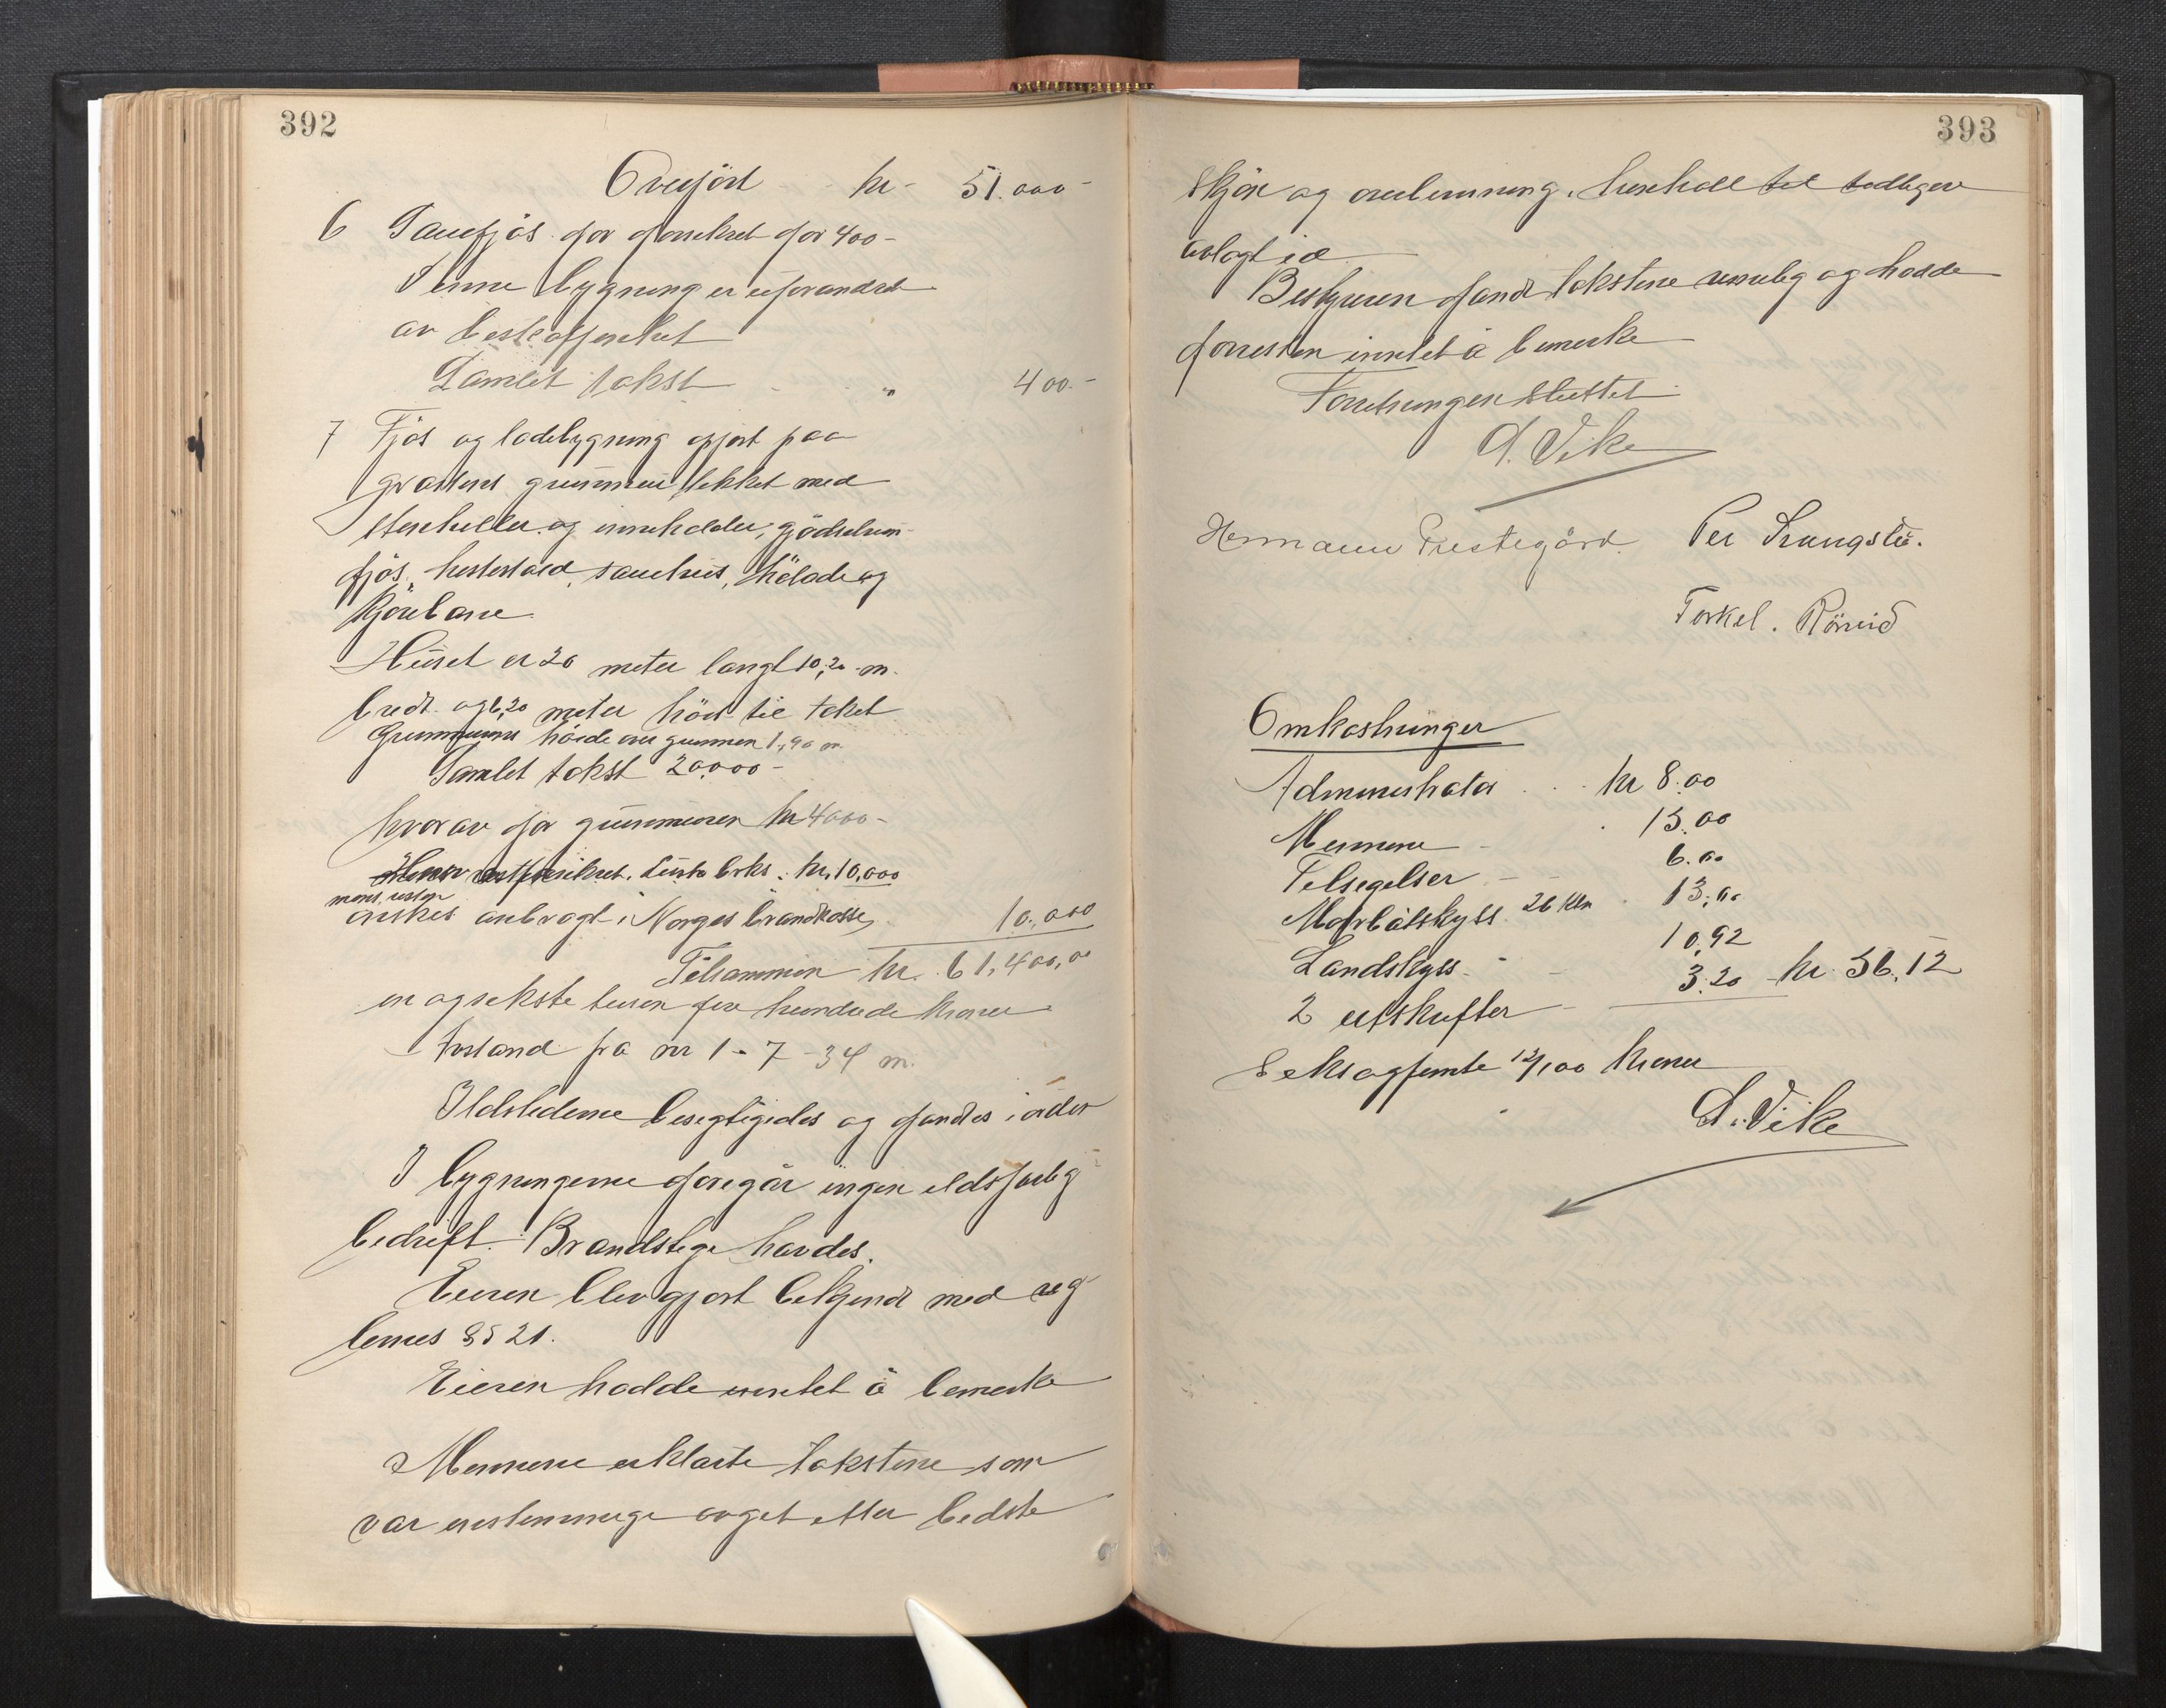 392
Overført kr. 51.000-
6 Sauefjös før forsikret for 400-
Denne bygning er uforandret
av beskaffenhet
Samlet takst - " 400.-
7 Fjös og ladebygning opført paa
gråstens grunnmur, tekket med
stenheller og inneholder, gjödselrum
fjös, hestestald, sauehus, hölade og
kjörebane
Huset er 20 meter langt 10,20 m.
bredt og 6,20 meter höit til taket
Grunnmurens höide over grunnen 1,90 m.
Samlet takst 20.000-
hvorav for grunnmuren kr 4000-
forsikret. Luster brks. kr. 10,000
mens resten
önskes anbragt i Norges brandkasse 10.000
Tilsammen kr. 61,400,00
en og sekste tusen fire hundrede kroner
Avstand fra nr 1-7 - 34 m.
Ildstederne besigtigedes og fandtes i orden
I bygningerne foregår ingen ildsfarlig
bedrift. Brandstige havdes.
Eieren blev gjort bekjendt med reg
lernes § 21.
Eieren hadde intet å bemerke
Mennene erklærte takstene som
var enstemmige avget etter bedste
393
skjön og overbevisning, i henhold til tidligere
avlagt ed
Bestyreren fandt takstene rimelig og hadde
forresten intet å bemerke
Forretningen sluttet
A. Vike
Hermann Prestegård. Per
Torkel. Röneid
Omkostninger
Administrator . . . kr 8.00
Mennene - . 15.00
Tilsigelser - - 6.00
Motorbåtskyss 26 klm . 13,00
Landskyss - 10,92
2 utskrifter - 3.20 kr. 56,12
Seksogfemte 12/100 kroner
A. Vike